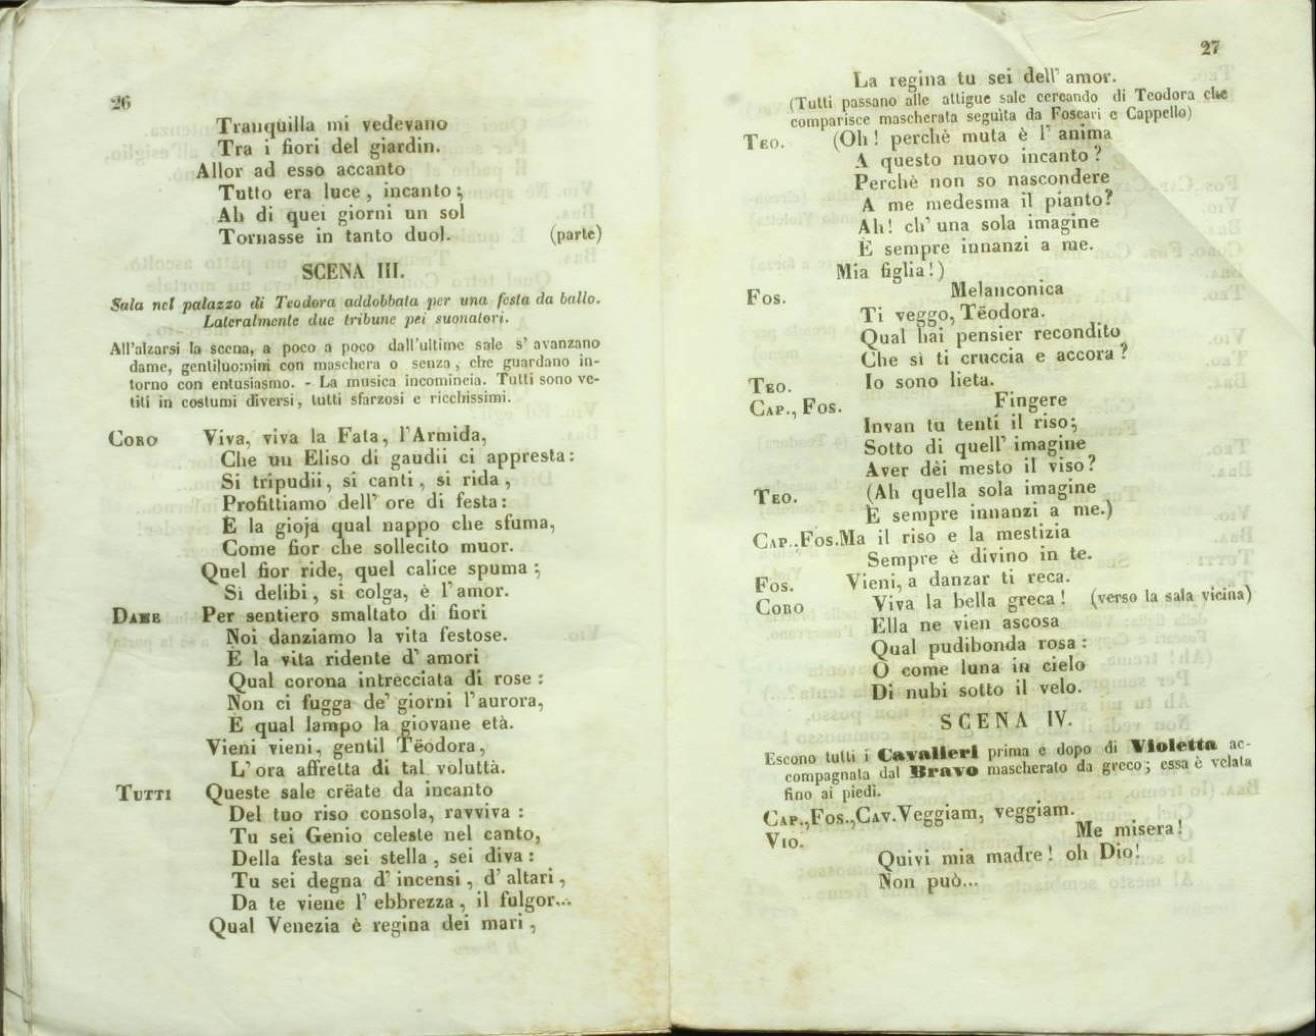 26
Tranquilla mi vedevano
Tra i fiori del giardin.
Allor ad esso accanto
Tutto era luce, incanto;
Ah di quei giorni un sol
Tornasse in tanto duol. (parte)
SCENA III.
Sala nel palazzo di Teodora addobbata per una festa da ballo.
Lateralmente due tribune pei suonatori.
All'alzarsi la scena, a poco a poco dall'ultime sale s'avanzano
dame, gentiluomini con maschera o senza, che guardano in-
torno con entusiasmo. - La musica incomincia. Tutti sono ve-
titi in costumi diversi, tutti sfarzosi e ricchissimi.
CORO Viva, viva la Fata, l'Armida,
Che un Eliso di gaudii ci appresta:
Si tripudii, si canti, si rida,
Profittiamo dell'ore di festa:
È la gioja qual nappo che sfuma,
Come fior che sollecito muor.
Quel fior ride, quel calice spuma;
Si delibi, si colga, è l'amor.
DAME Per sentiero smaltato di fiori
Noi danziamo la vita festose.
È la vita ridente d'amori
Qual corona intrecciata di rose:
Non ci fugga de' giorni l'aurora,
È qual lampo la giovane età.
Vieni vieni, gentil Tëodora,
L'ora affretta di tal voluttà.
TUTTI Queste sale crëate da incanto
Del tuo riso consola, ravviva:
Tu sei Genio celeste nel canto,
Della festa sei stella, sei diva:
Tu sei degna d'incensi, d'altari,
Da te viene l'ebbrezza, il fulgor...
Qual Venezia è regina dei mari,
27
La regina tu sei dell'amor.
(Tutti passano alle attigue sale cercando di Teodora che
comparisce mascherata seguìta da Foscari e Cappello)
TEO. (Oh! perchè muta è l'anima
A questo nuovo incanto?
Perchè non so nascondere
A me medesma il pianto?
Ah! ch'una sola imagine
È sempre innanzi a me.
Mia figlia!)
FOS. Melanconica
Ti veggo, Tëodora.
Qual hai pensier recondito
Che sì ti cruccia e accora?
TEO. Io sono lieta.
CAP., FOS. Fingere
Invan tu tenti il riso;
Sotto di quell'imagine
Aver dêi mesto il viso?
TEO. (Ah quella sola imagine
È sempre innanzi a me.)
CAP., FOS. Ma il riso e la mestizia
Sempre è divino in te.
FOS. Vieni, a danzar ti reca.
CORO Viva la bella greca! (verso la sala vicina)
Ella ne vien ascosa
Qual pudibonda rosa:
O come luna in cielo
Di nubi sotto il velo.
SCENA IV.
Escono tutti i Cavalieri prima e dopo di Violetta ac-
compagnata dal Bravo mascherato da greco; essa è velata
fino ai piedi.
CAP., FOS., CAV. Veggiam, veggiam.
VIO. Me misera!
Quivi mia madre! oh Dio!
Non può...